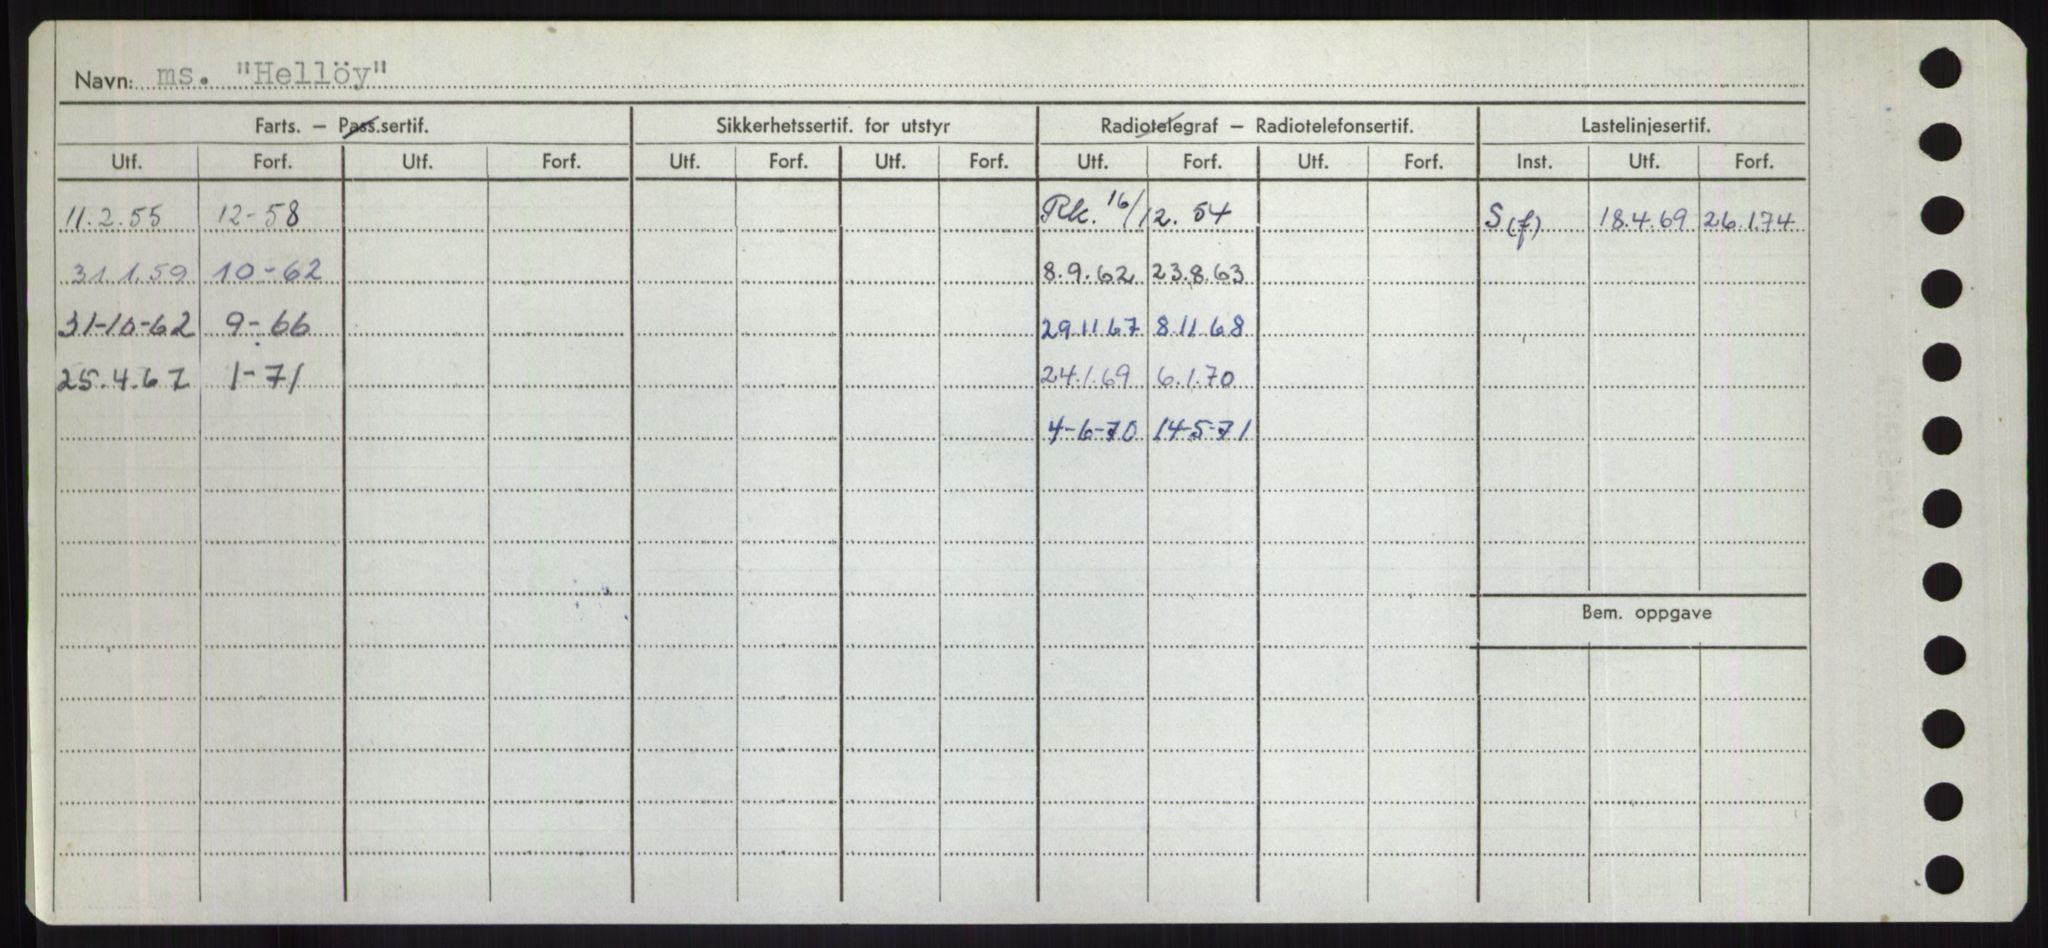 Navn: ms. "Hellöy"
Farts. – Pass.sertif. Sikkerhetssertif. for utstyr Radiotelegraf – Radiotelefonsertif. Lastelinjesertif.
Utf. Forf. Utf. Forf. Utf. Forf. Utf. Forf. Utf. Forf. Utf. Forf. Inst. Utf. Forf.
11.2.55 12-58 Rk. 16/12.54 S(f) 18.4.69 26.1.74
31.1.59 10-62 8.9.62 23.8.63
31-10-62 9-66 29.11.67 8.11.68
25.4.67 1-71 24.1.69 6.1.70
4-6-70 14-5-71
Bem. oppgave